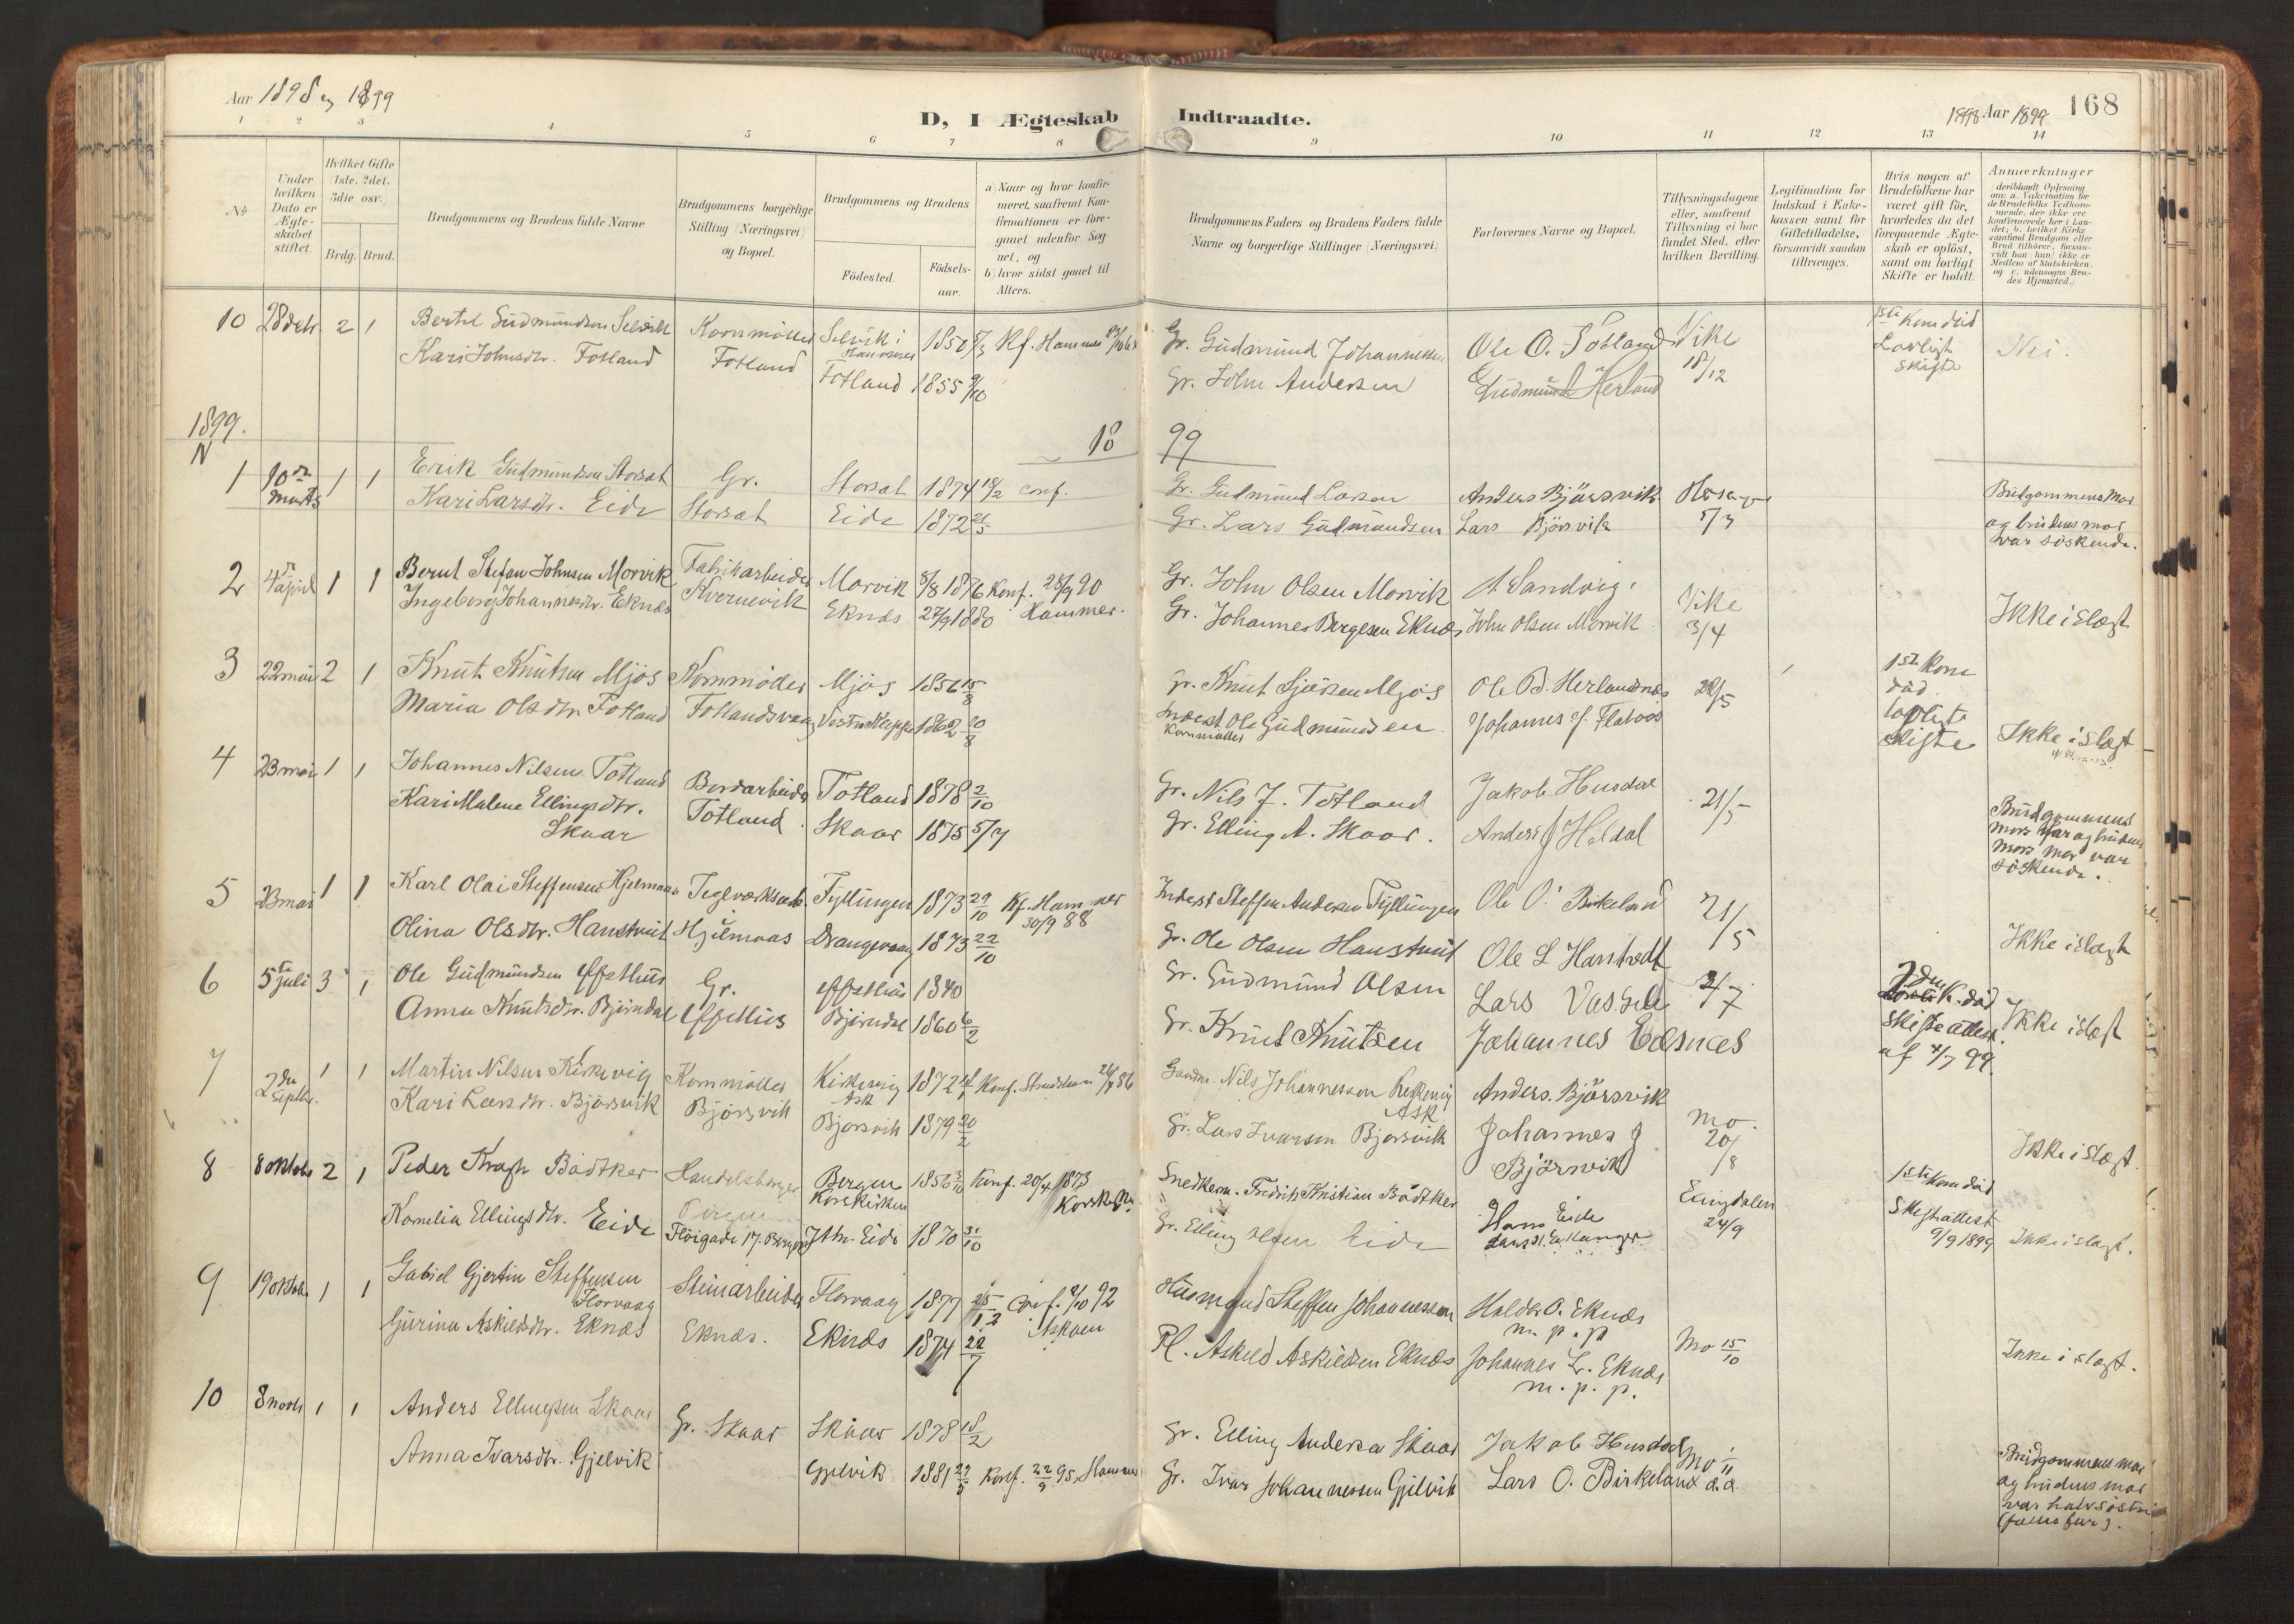 Aar 1898 og 1899
D, I Ægteskab Indtraadte.
1898 Aar 1899 168
1 2 3 4 5 6 7 8 9 10 11 12 13 14
No
Under hvilken Dato er Ægteskabet stiftet.
Hvilket Gifte (1ste, 2det, 3die osv.)
Brdg. Brud.
Brudgommens og Brudens fulde Navne
Brudgommens borgerlige Stilling (Næringsvei) og Bopæl.
Brudgommens og Brudens
Födested. Födsels-aar.
a) Naar og hvor konfirmeret, saafremt Konfirmationen er foregaaet udenfor Sognet, og
b) hvor sidst gaaet til Alters.
Brudgommens Faders og Brudens Faders fulde Navne og borgerlige Stillinger (Næringsvei)
Forlovernes Navne og Bopæl.
Tillysningsdagene eller, saafremt Tillysning ei har fundet Sted, efter hvilken Bevilling.
Legitimation for Indskud i Enkekassen samt for Giftetilladelse, forsaavidt saadan tiltrænges.
Hvis nogen af Brudefolkene har været gift för, hvorledes da det foregaaende Ægteskab er oplöst, samt om lovligt Skifte er holdt.
Anmærkninger
(deriblandt Oplysning om: a. Vakcination for de Brudefolks Vedkommende, der ikke ere konfirmerede her i Landet; b. hvilket Kirkesamfund Brudgom eller Brud tilhörer, forsaavidt han (hun) ikke er Medlem af Statskirken, og c. udensogns Brudes Hjemsted.)
10 28 2 1 Bertel Gudmundsen Selvik Kornmöller Selvik i 1850 7/3 Kf. Hammer Gr. Gudmund Johannessen Ole O. Totland Vike 1ste Kone död
Kari Johnsdtr. Fotland Fotland Fotland 1855 9/10 Gr. John Andersen Gudmund Herland 18/12 Lovligt Skifte Nei.
1899.
N 18 99
1 10de Marts 1 1 Erik Gudmundsen Storsæt Gr. Storsæt 1874 18/2 conf. Gr. Gudmund Larsen Anders Bjørsvik Brudgommens Mor
Kari Larsdtr. Eide Storsæt Eide 1872 21/5 Gr. Lars Gudmundsen Lars Bjørsvik 5/3 og brudens mor var söskende.
2 4de april 1 1 Bernt Stefan Johnsen Morvik Fabrikarbeider Morvik 8/8 1876 Konf. 28/9 90 Gr. John Olsen Morvik A. Sandvig. Vike
Ingeborg Johannesdtr. Eknæs Kvernevik Eknæs 27/9 1880 Hammer. Gr. Johannes Børgesen Eknæs John Olsen Morvik 3/4 Ikke i Slægt
3 22 mai 2 1 Knut Knutsen Mjös Kornmöller Mjös 1856 15/8 Gr. Knut Sjursen Mjös Ole B. Herlandsnæs 22/5 1ste Kone död
Maria Olsdtr. Fotland Fotlandsvaag 1862 20/8 Inderst Ole Gudmundsen Johannes J. Flatöös lovligt skifte Ikke i Slægt
Kornmöller
4 23 mai 1 1 Johannes Nilsen Totland Bordarbeider Totland 1878 2/10 Gr. Nils J. Totland Jakob Husdal 21/5 Brudgommens
Kari Malene Ellingsdtr. Totland. Skaar 1875 5/7 Gr. Elling A. Skaar. Anders J Heldal mors far og brudens
Skaar mors mor var söskende.
5 23 mai 1 1 Karl Olai Steffensen Hjelmaas Teglverksarb. Fyllingen 1873 29/10 Kf. Hammer Inderst Steffen Andersen Fyllingen Ole O. Birkeland 21/5
30/9 88
Olina Olsdtr. Hanstveit Hjelmaas Drangevaag 1873 22/10 Gr. Ole Olsen Hanstveit Ole L Hanstvedt Ikke i slægt
6 5te juli 3 1 Ole Gudmundsen Gr. 1840 Gr. Gudmund Olsen Lars Vassele 2/7 2den K. död
Anna Knutsdtr. Björndal Björndal 1860 6/2 Gr. Knut Knutsen Johannes Eidsnæs skifteattest Ikke i slægt
af 4/7 99.
7 2den Septbr. 1 1 Martin Nilsen Kirkevig Kornmöller Kirkevig 1872 Konf. 86 Gaardm. Nils Johannessen Kirkevig Anders Björsvik Mo
Ask Ask
Kari Larsdtr. Björsvik Björsvik Björsvik 1879 20/2 Gr. Lars Ivarsen Björsvik Johannes J Björsvik 20/8 Ikke i Slægt.
8 8 oktober 2 1 Peder Krag Bödtker Handelsborger Bergen 1856 3/10 Konf. 20/4 1873 Snedkerm. Fredrik Kristian Bödtker Hans Eide Eingdalen 1ste Kone död
Bergen Korskirken Korsk.
Kornelia Ellingsdtr. Eide Flöigade 17. Bergen Eide 1870 31/10 Gr. Elling Olsen Eide 24/9 Skifteattest 9/9 1899 Ikke i slægt.
9 19 oktober 1 1 Gabriel Gjertin Steffensen Stenarbeider Florvaag 1877 25/12 Conf. 2/10 92 Husmand Steffen Johannessen Haldor O. Eknæs
Florvaag Askøen m. p. p.
Gurina Askildsdtr. Eknæs Eknæs. Eknæs 1874 22/7 Pl. Askild Askildsen Eknæs Johannes L. Eknæs Mo 15/10 Ikke i slægt.
m. p. p.
10 8 novbr 1 1 Anders Ellingsen Skaar Gr. Skaar Skaar 1878 18/2 Gr. Elling Andersen Skaar Jakob Husdal Mo Brudgommens mor
Anna Ivarsdtr. Gjelvik Gjelvik 1881 29/5 Konf. 22/9 95. Hammer Gr. Ivar Johannessen Gjelvik Lars O. Birkeland og brudens mor
var halvsöstre